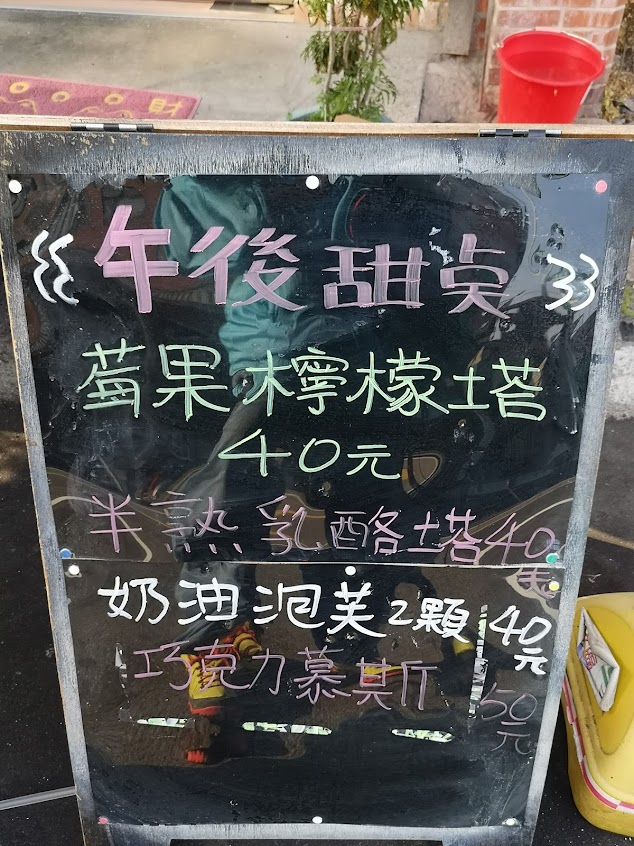 午後甜点
莓果檸檬塔
40元
半熟乳酪塔40元
奶油泡芙2顆40元
巧克力慕斯50元